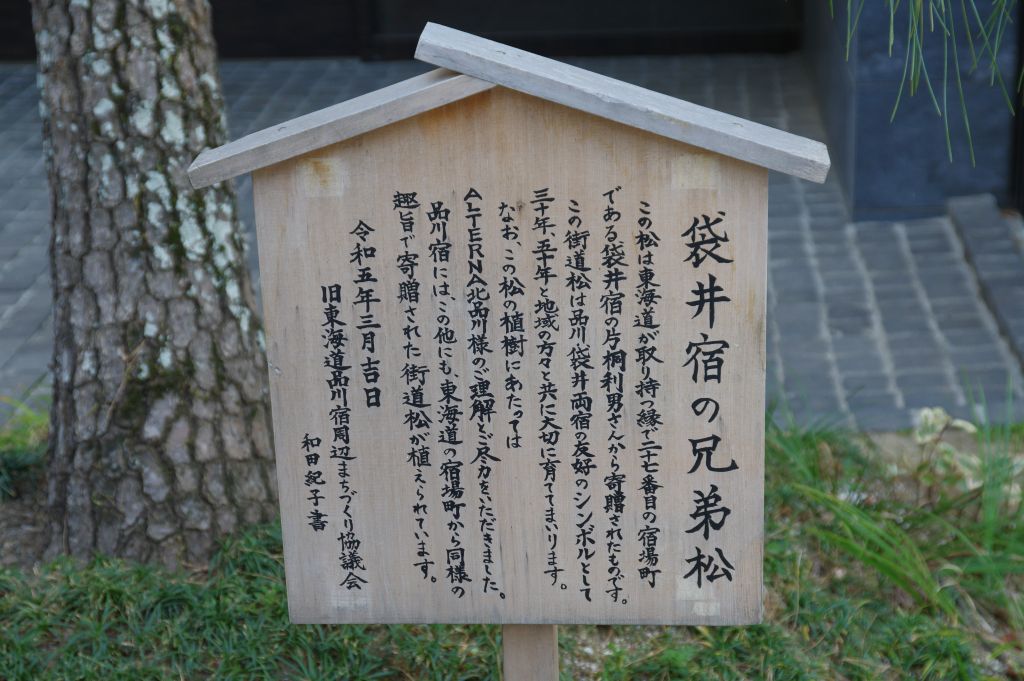 袋井宿の兄弟松
この松は東海道が取り持つ縁で二十七番目の宿場町
である袋井宿の片桐利男さんから寄贈されたものです。
この街道松は品川袋井両宿の友好のシンボルとして
三十年、五十年と地域の方々と共に大切に育ててまいります。
なお、この松の植樹にあたっては
ALTERNA北品川様のご理解とご尽力をいただきました。
品川宿には、この他にも、東海道の宿場町から同様の
趣旨で寄贈された街道松が植えられています。
令和五年三月吉日
旧東海道品川宿周辺まちづくり協議会
和田紀子書